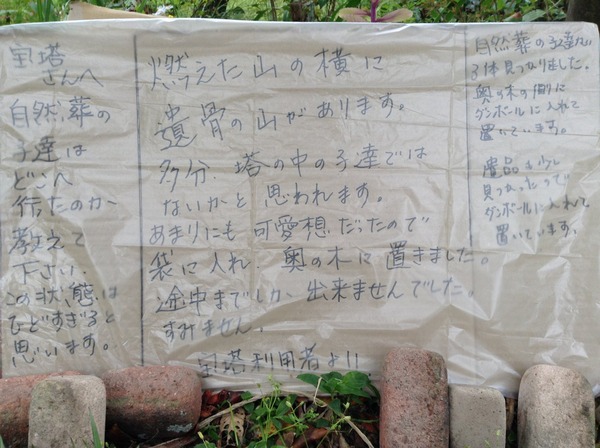 宝塔
さんへ
自然葬の
子達は
どこへ
行たのか
教えて
下さい.
この状態は
ひどすぎると
思います。
燃えた山の横に
遺骨の山があります。
多分.塔の中の子達では
ないかと思われます。
あまりにも可愛想だったので
袋に入れ.奥の木に置きました。
途中までしか出来ませんでした。
すみません.
宝塔利用者より.
自然葬の子達が
3体見つかりました。
奥の木の側に
ダンボールに入れて
置いています。
遺品も少し
見つかったので
ダンボールに入れて
置いています。